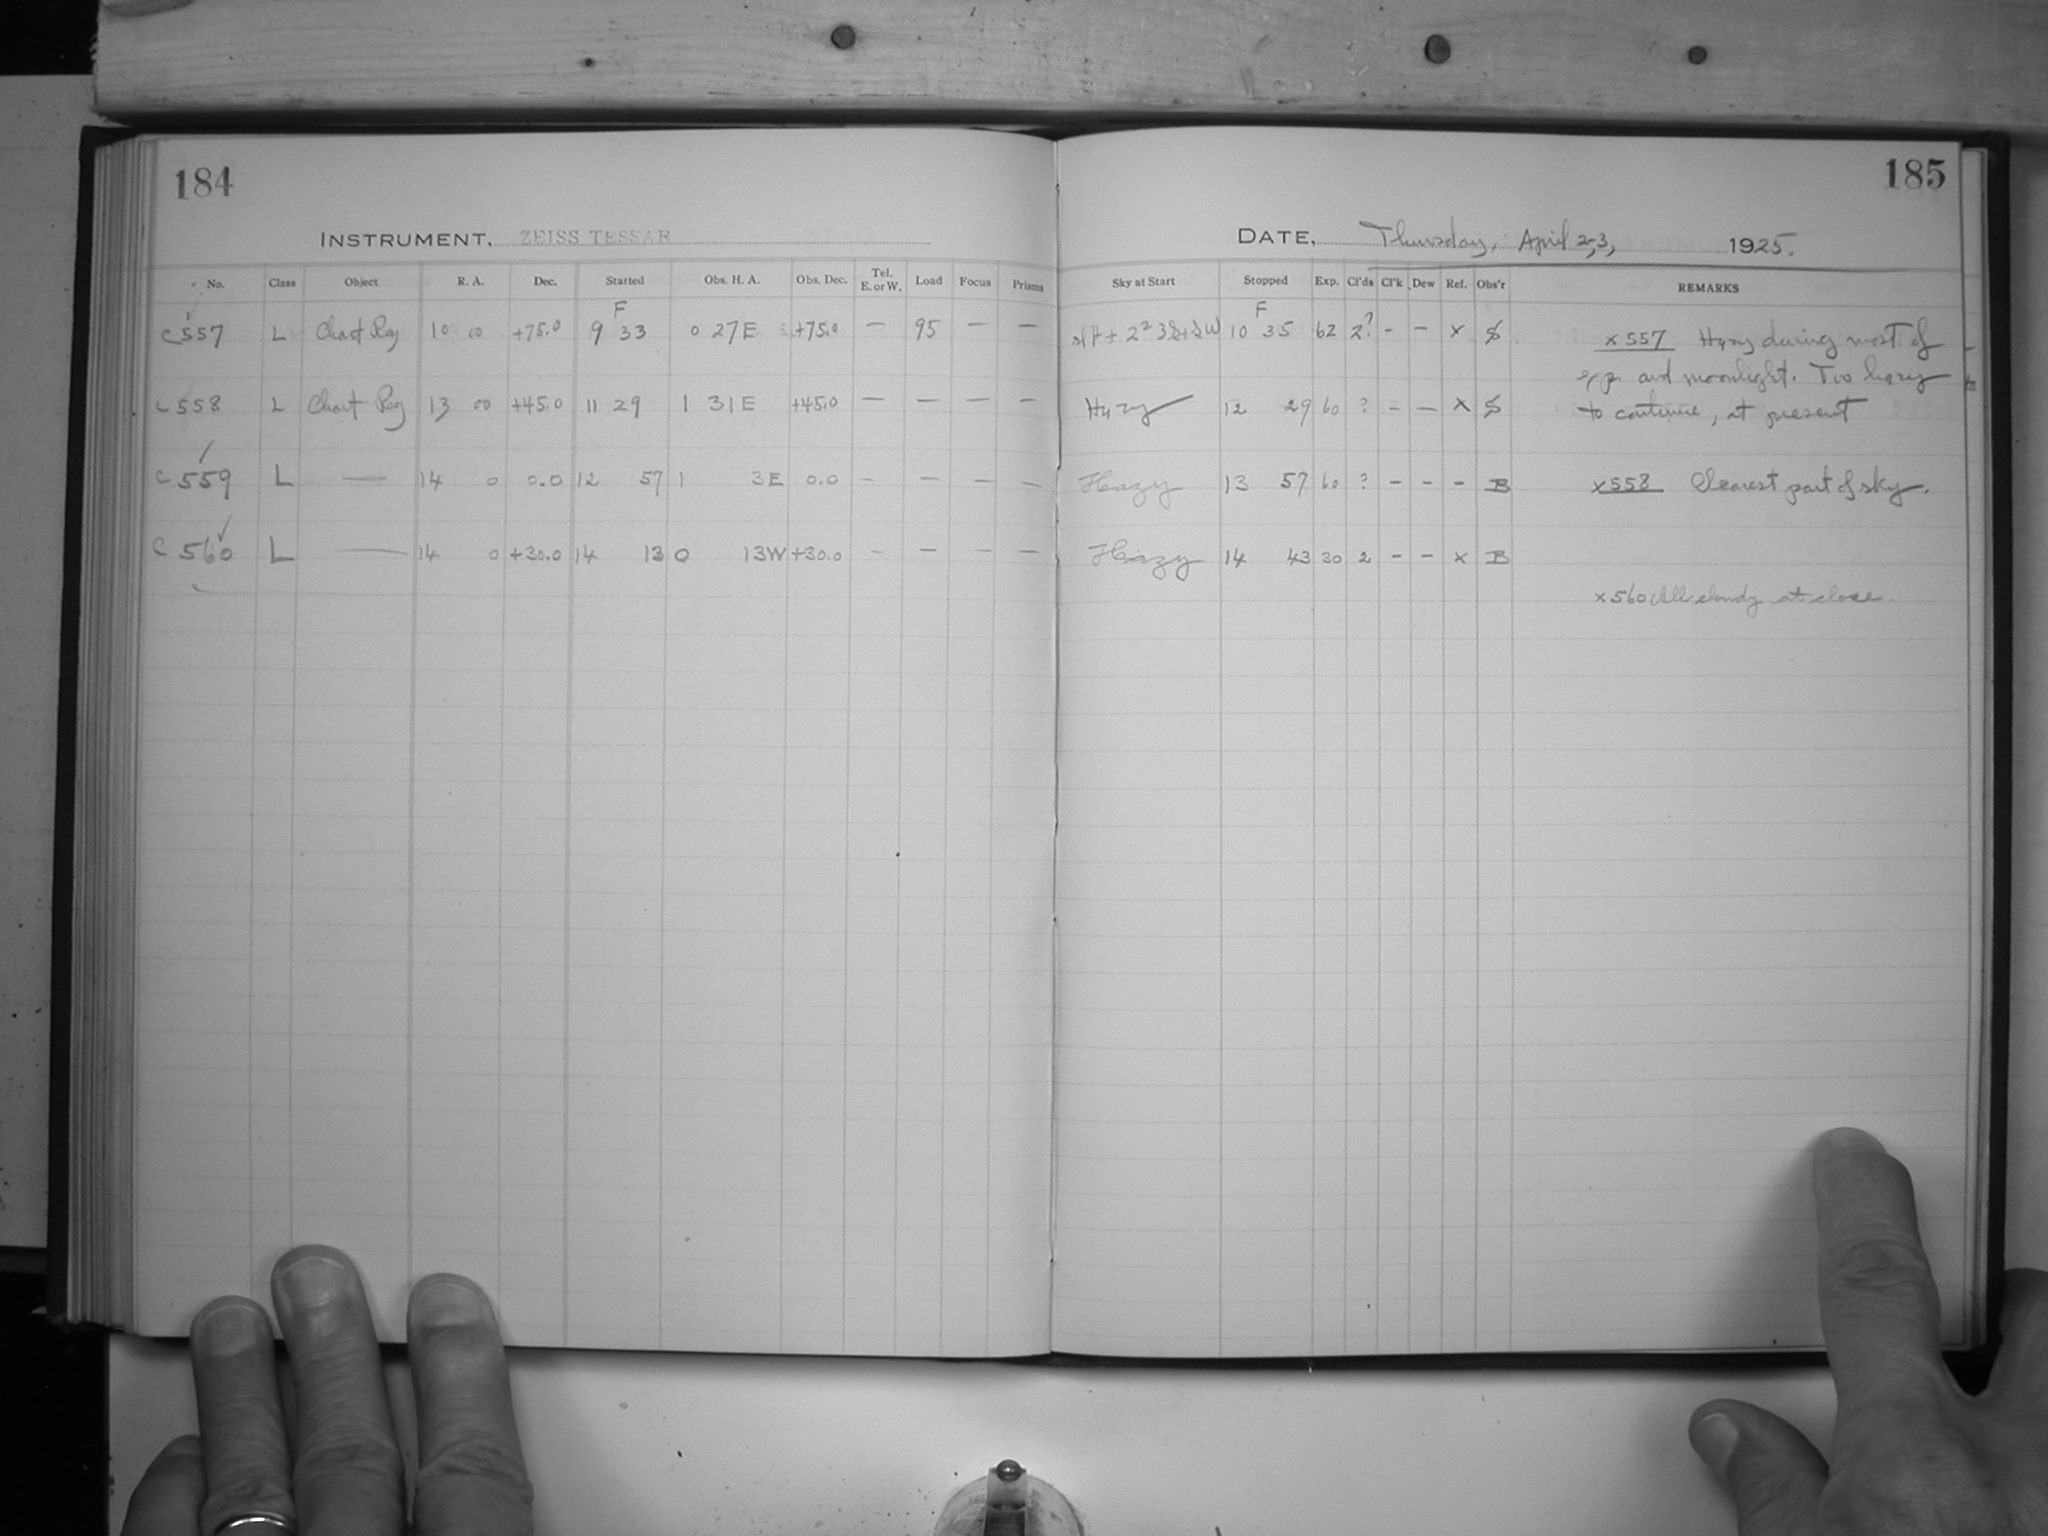 184
185
INSTRUMENT, ZEISS TESSAR
DATE, Thursday, April 2-3, 1925.
No. Class Object R. A. Dec. Started Obs. H. A. Obs. Dec. Tel. E. or W. Load Focus Prisms Sky at Start Stopped Exp. Cl'ds Cl'k Dew Ref. Obs'r REMARKS
F F
C 557 L Chart Reg 10 00 +75.0 9 33 0 27 E +75.0 — 95 — — 10 35 62 2? - – x S x 557 Hazy during most of
exp. and moonlight. Too hazy
C 558 L Chart Reg 13 00 +45.0 11 29 1 31 E +45.0 — — — — Hazy 12 29 60 ? - – X S to continue, at present
C 559 L — 14 0 0.0 12 57 1 3 E 0.0 - – – – Hazy 13 57 60 ? - - - B x 558 Clearest part of sky.
C 560 L — 14 0 +30.0 14 13 0 13 W +30.0 - – – – Hazy 14 43 30 2 - - x B
x 560 All cloudy at close.